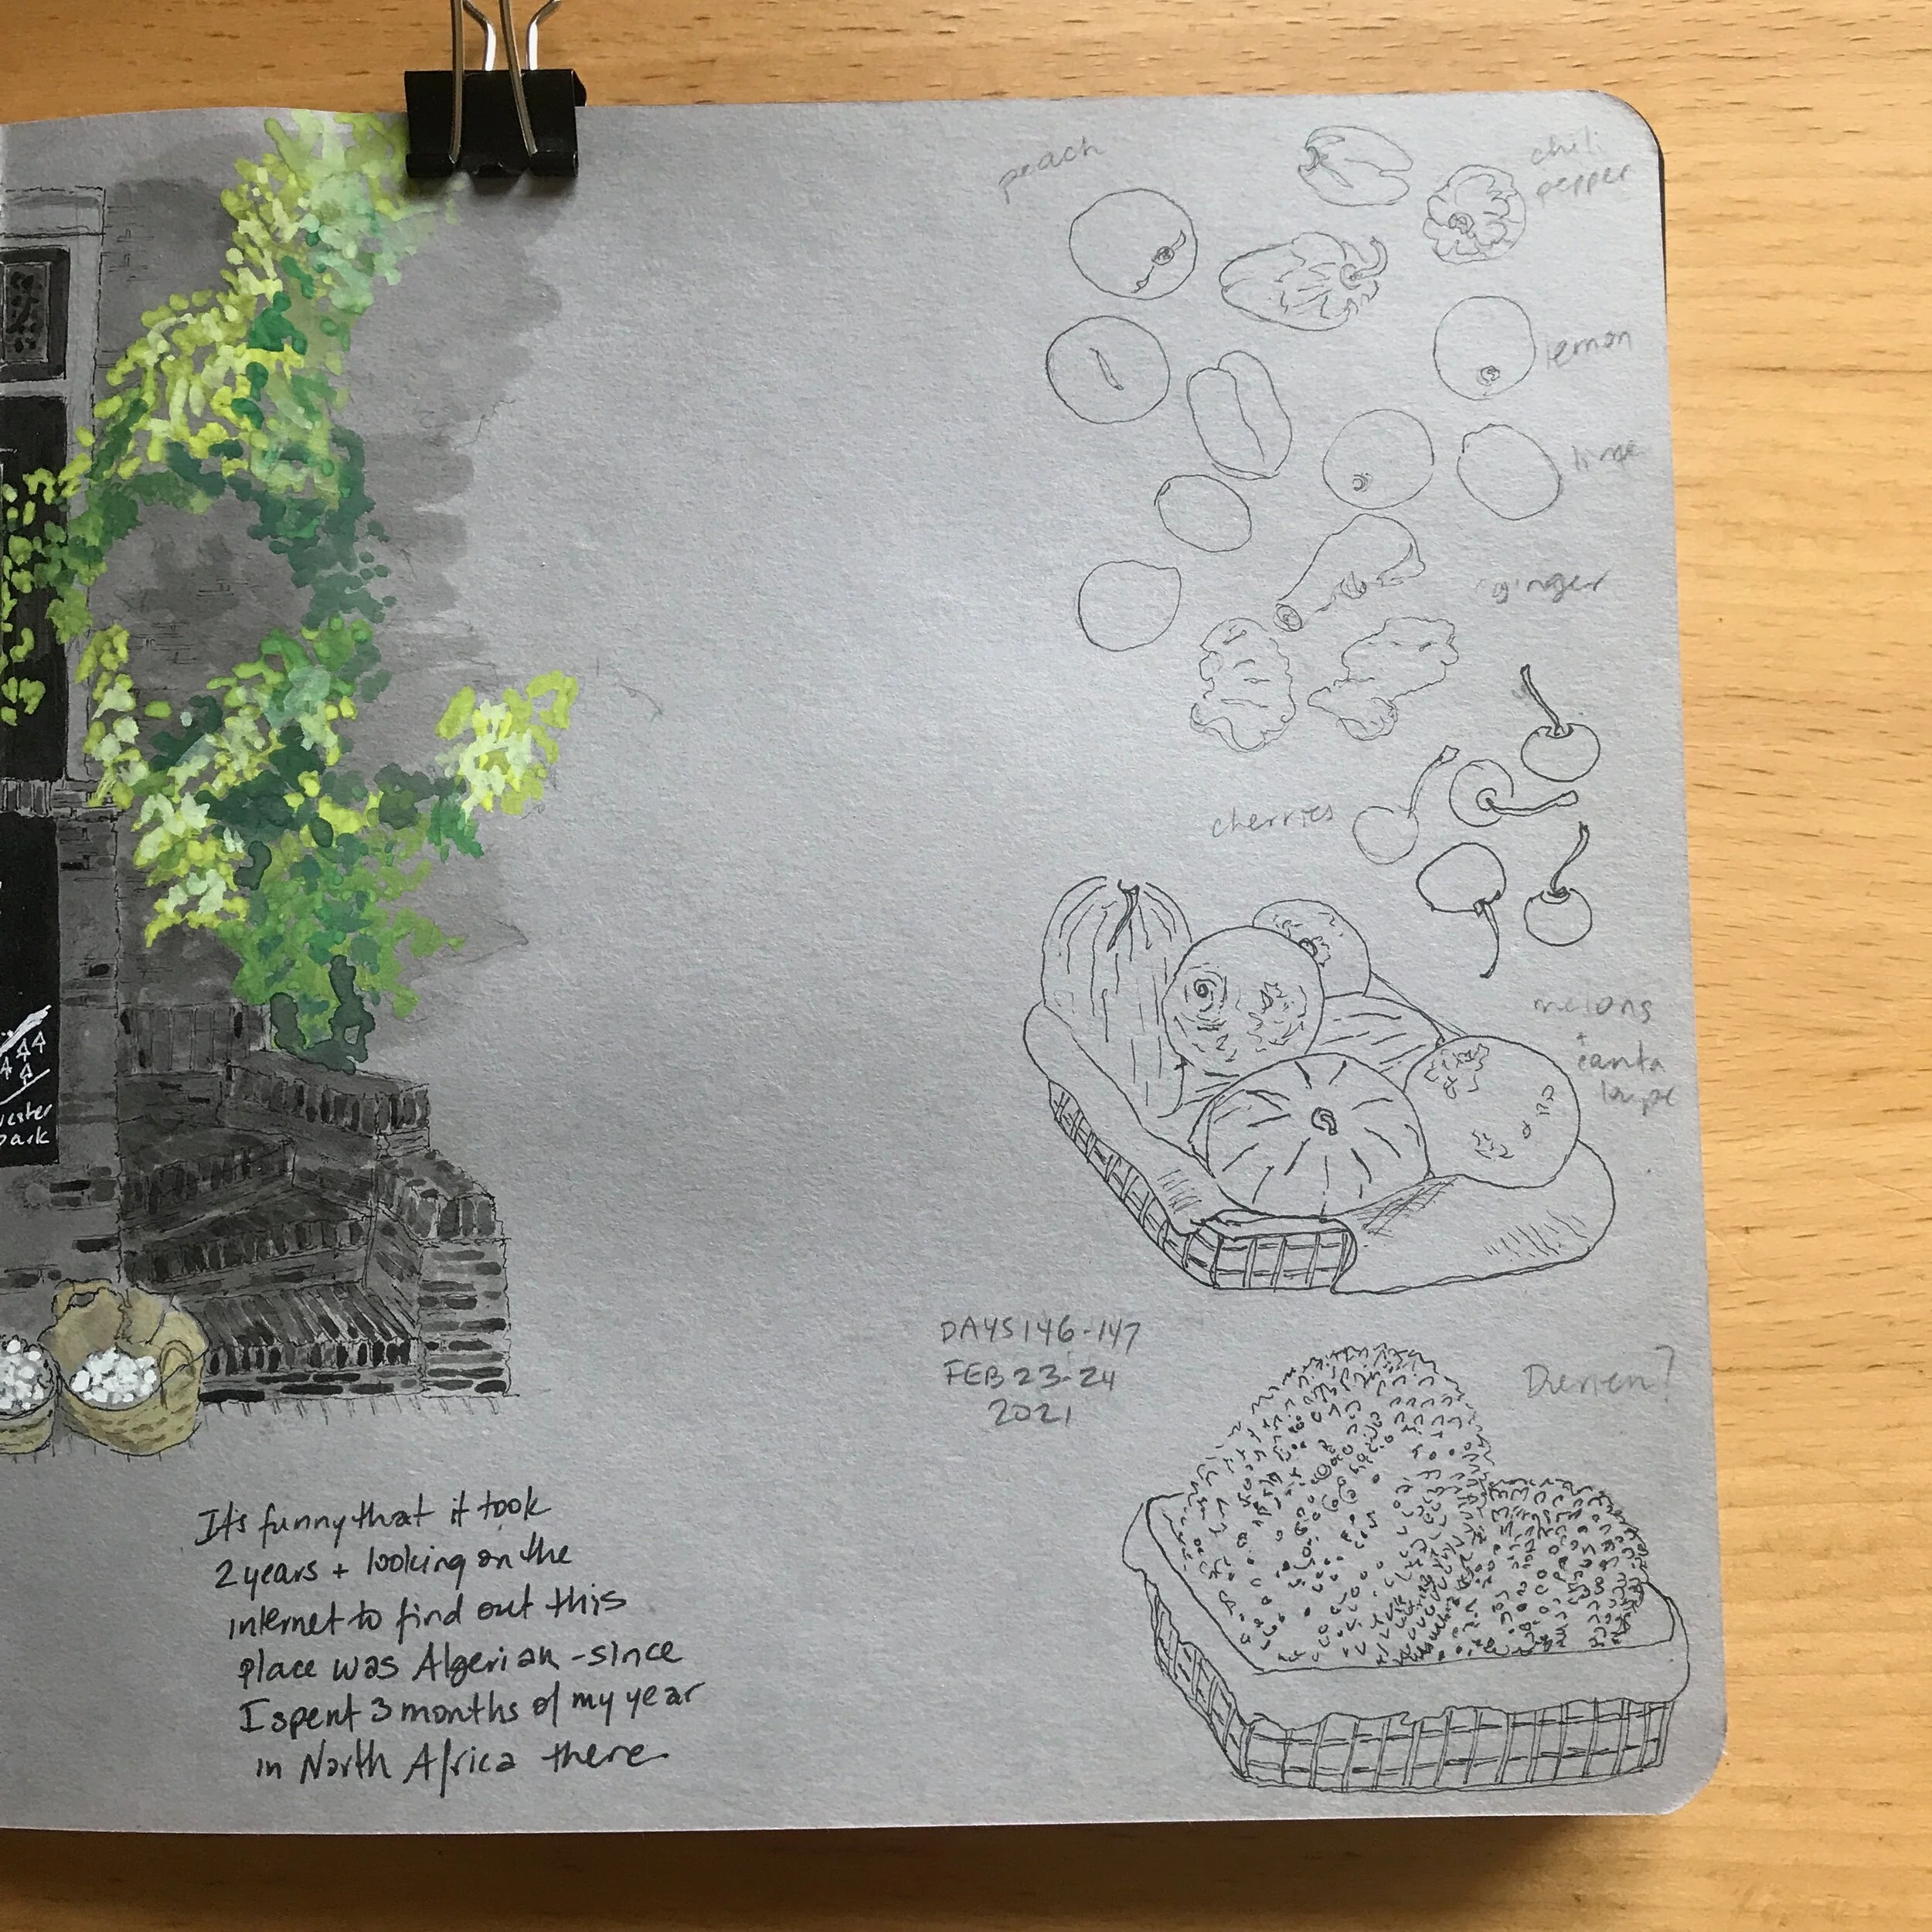 peach
chili
pepper
lemon
lime
ginger
cherries
melons
+
canta
loupe
DAYS 146-147
FEB 23-24
2021
ark
It's funny that it took
2 years + looking on the
internet to find out this
place was Algerian - since
I spent 3 months of my year
in North Africa there